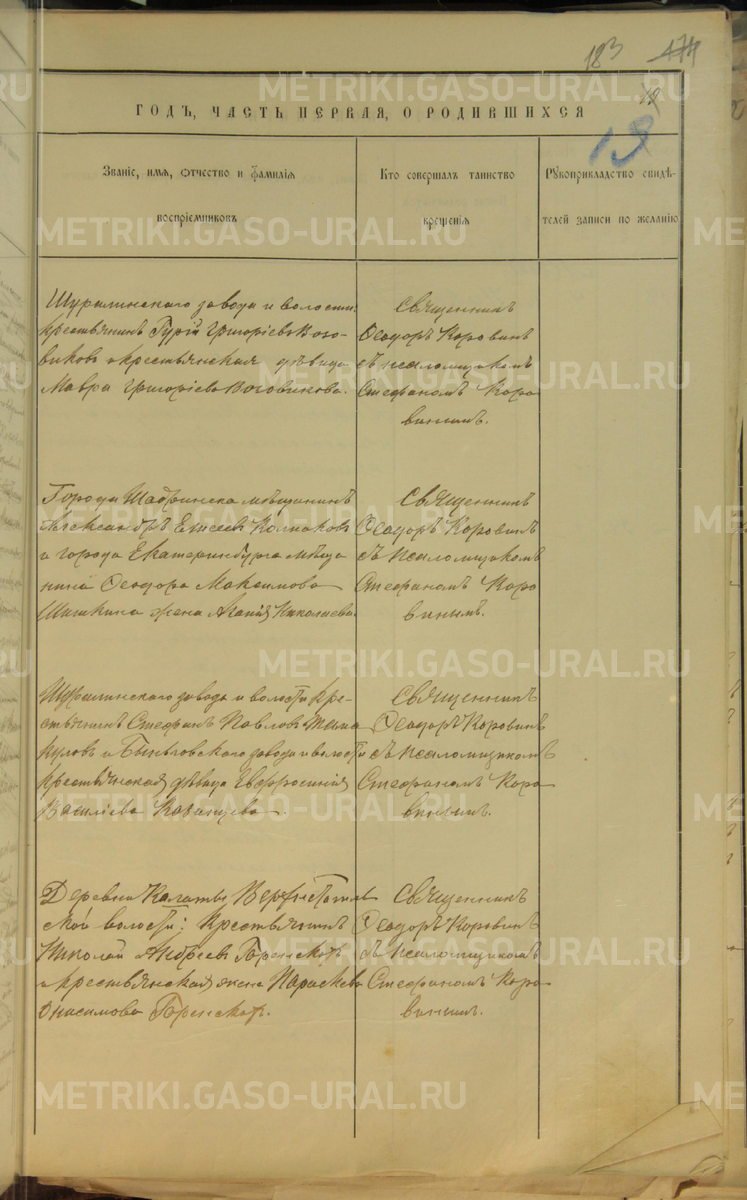 183 174
18
METRIKI.GASO-URAL.RU
ГОДЪ, ЧАСТЬ ПЕРВАЯ, О РОДИВШИХСЯ
Званіе, имя, отчество и фамилія
воспріемниковъ
Кто совершалъ таинство
крещенія
Рукоприкладство свидѣ-
телей записи по желанію
METRIKI.GASO-URAL.RU
Шуралинскаго завода и волости:
крестьянинъ Гурій Григоріевъ Вого-
виковъ и крестьянская дѣвица
Мавра Григоріева Воговикова.
Священникъ
Ѳеодоръ Коровинъ
съ псаломщикомъ
Стефаномъ Коро
винымъ.
METRIKI.GASO-URAL.RU
Города Шадринска мѣщанинъ
Александръ Елисеевъ Колмаковъ
и города Екатеринбурга мѣща
нина Ѳеодора Максимова
Шишкина жена Агапія Николаева.
Священникъ
Ѳеодоръ Коровинъ
съ псаломщикомъ
Стефаномъ Коро
винымъ.
METRIKI.GASO-URAL.RU
METRIKI.GASO-URAL.RU
Шуралинскаго завода и волости кре-
стьянинъ Стефанъ Павловъ
и Быньговскаго завода и волости
крестьянская дѣвица Евфросинія
Василіева Казанцева.
Священникъ
Ѳеодоръ Коровинъ
съ псаломщикомъ
Стефаномъ Коро
винымъ.
METRIKI.GASO-URAL.RU
Деревни Калаты Верхнетагиль
ской волости: крестьянинъ
Николай Андреевъ
и крестьянская жена Параскева
Онисимова
Священникъ
Ѳеодоръ Коровинъ
съ псаломщикомъ
Стефаномъ Коро
винымъ.
METRIKI.GASO-URAL.RU
METRIKI.GASO-URAL.RU